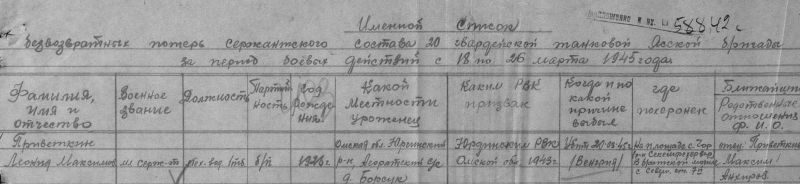 Приложение к вх. 58842с
Именной Список
безвозвратных потерь сержантского состава 20 гвардейской танковой Ясской бригады
за период боевых действий с 18 по 26 марта 1945 года.
Фамилия, имя и отчество
Военное звание
Должность
Партийность
Год рождения
Какой местности уроженец
Каким РВК призван
Когда и по какой причине выбыл
где похоронен
Ближайши
Родственные отношения Ф. И. О.
Приветкин
Леонид Максимов.
мл. серж-т
б/п
1926 г.
Омской обл. Юргинский
р-н Агаракский с/с
д. Борсук
Юргинским РВК
Омской обл. 1943 г.
Убит 20.03.45 г.
(Венгрия)
На площади с. Чор
В братской могиле
с Север. от. 79
отец: Приветкин
Максим